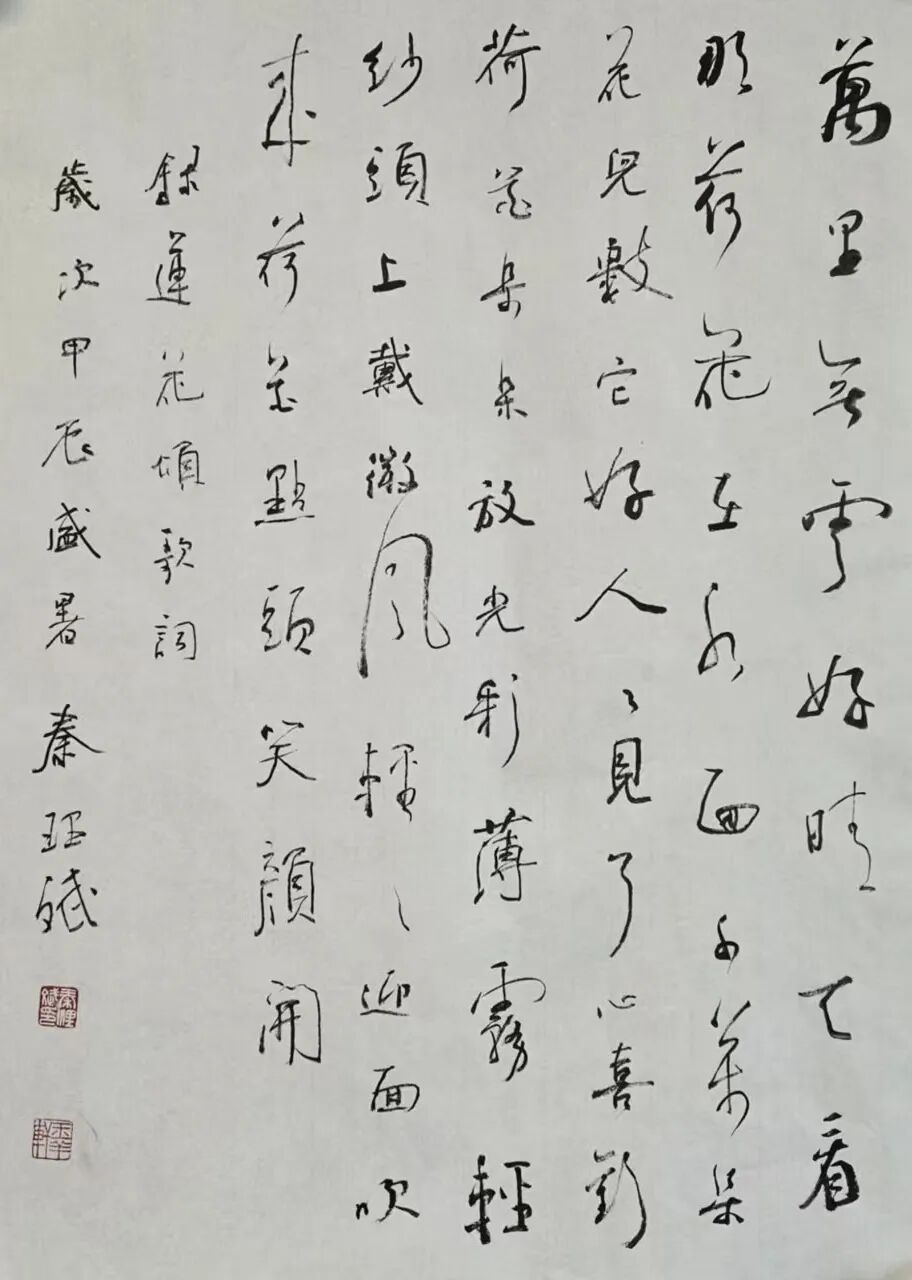 萬里無雲好晴天看
那荷花在水面千萬朵
花兒數它好人〻見了心喜歡
荷花朵朵放光彩薄霧輕
紗頭上戴微風輕〻迎面吹
來荷花點頭笑顏開
錄蓮花頌歌詞
歲次甲辰盛暑 秦斌